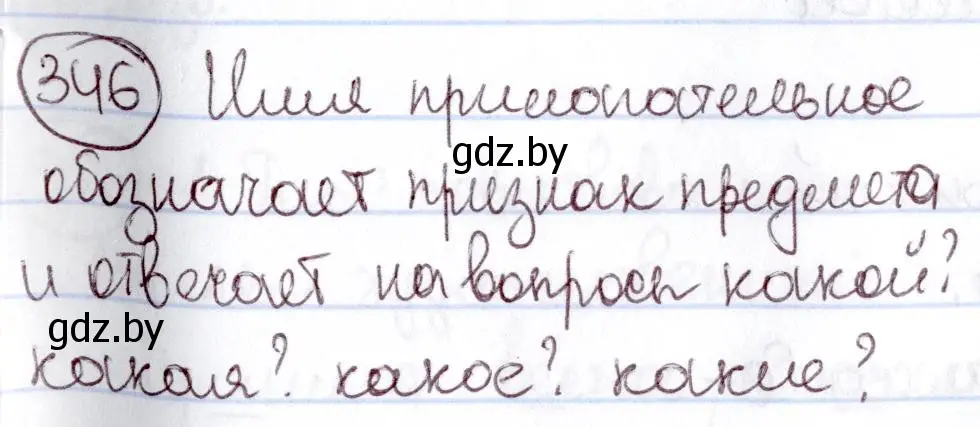 346 Имя прилагательное
gdz.by
обозначает признак предмета
и отвечает на вопросы какой?
gdz.by
какая? какое? какие?